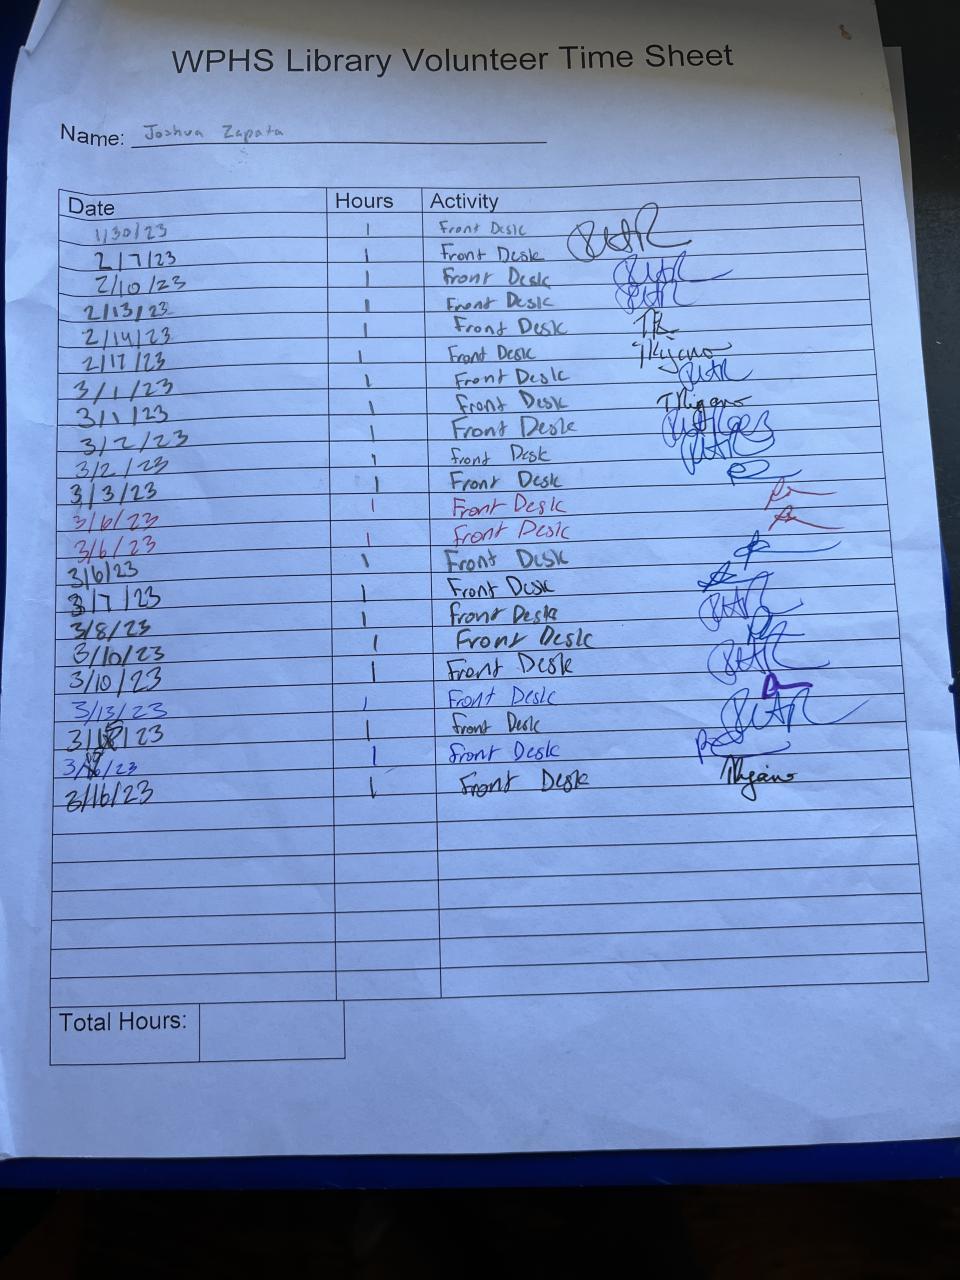 WPHS Library Volunteer Time Sheet
Name: Joshua Zapata
Date Hours Activity
1/30/23 1 Front Desk
2/7/23 1 Front Desk
2/10/23 1 Front Desk
2/13/23 1 Front Desk
2/14/23 1 Front Desk
2/17/23 1 Front Desk
3/1/23 1 Front Desk
3/1/23 1 Front Desk
3/2/23 1 Front Desk
3/2/23 1 Front Desk
3/3/23 1 Front Desk
3/6/23 1 Front Desk
3/6/23 1 Front Desk
3/6/23 1 Front Desk
3/7/23 1 Front Desk
3/8/23 1 Front Desk
3/10/23 1 Front Desk
3/10/23 1 Front Desk
3/13/23 1 Front Desk
1 Front Desk
1 Front Desk
3/16/23 1 Front Desk
Total Hours: